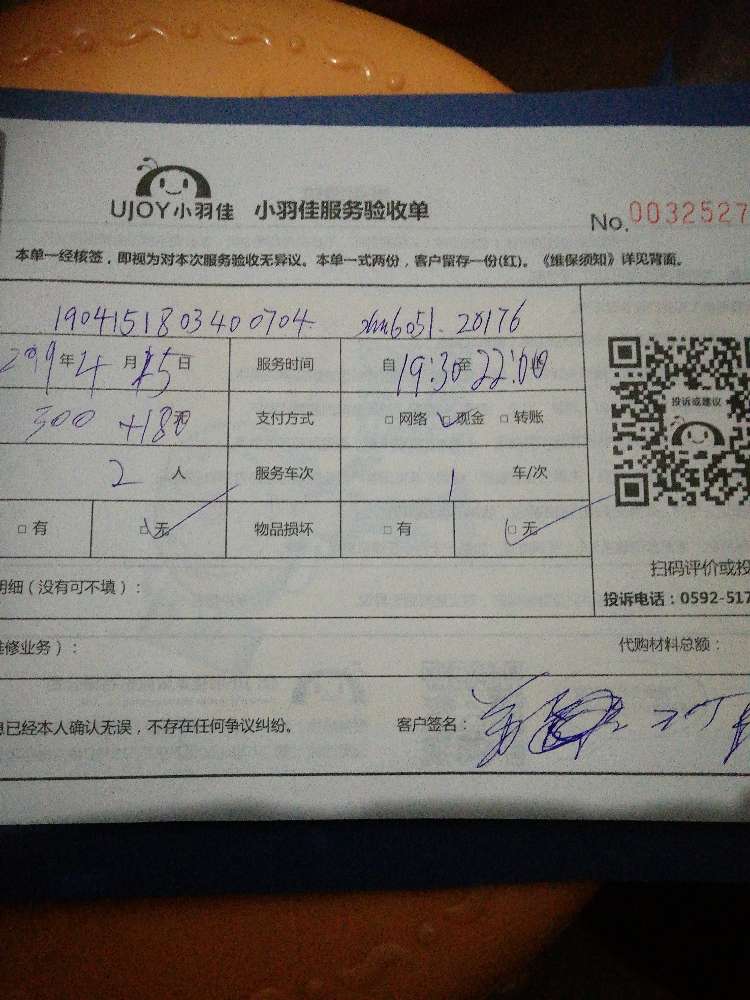 UJOY小羽佳 小羽佳服务验收单
No.0032527
本单一经核签，即视为对本次服务验收无异议。本单一式两份，客户留存一份(红)。《维保须知》详见背面。
1904151803400704 xm6051.20176
2019年4月15日 服务时间 自19:30至22:00
300 +180元 支付方式 □网络 □现金 □转账
2人 服务车次 1 车/次
□有 □无 物品损坏 □有 □无
投诉或建议
扫码评价或投
明细（没有可不填）：
投诉电话：0592-517
维修业务）：
代购材料总额：
息已经本人确认无误，不存在任何争议纠纷。 客户签名：